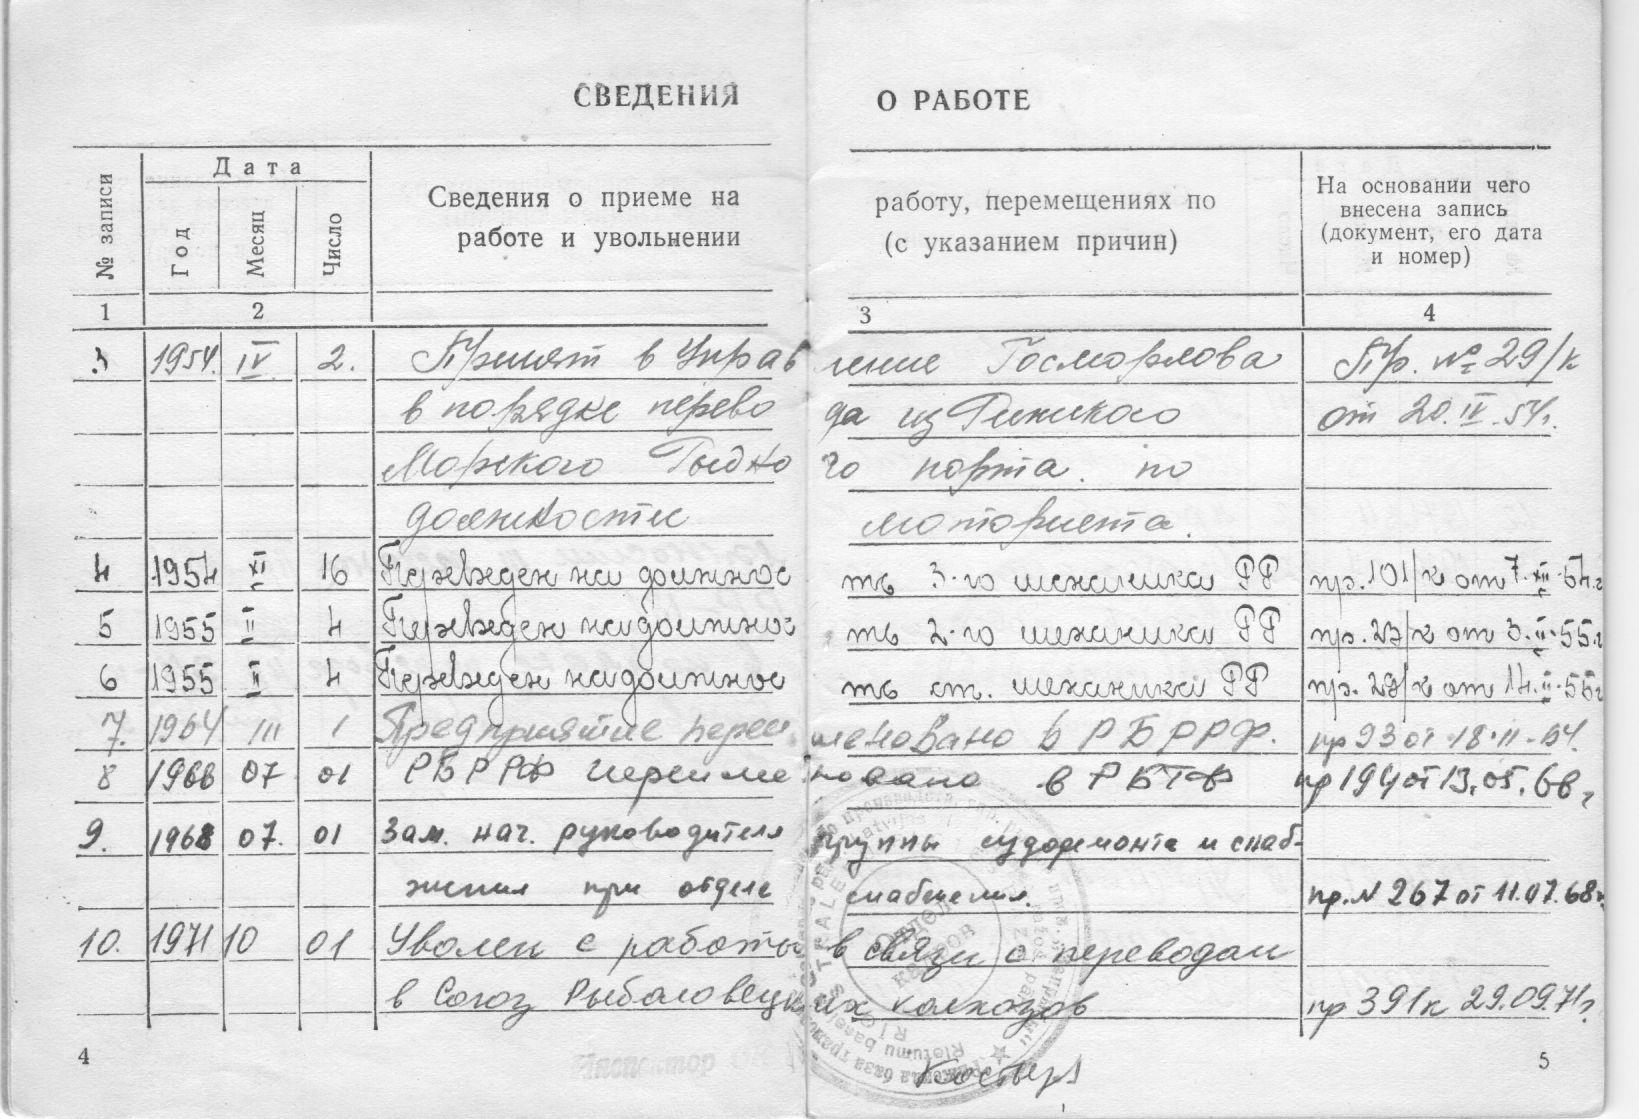 СВЕДЕНИЯ О РАБОТЕ
№ записи
Дата
Год
Месяц
Число
Сведения о приеме на работу, перемещениях по
работе и увольнении (с указанием причин)
На основании чего
внесена запись
(документ, его дата
и номер)
1 2 3 4
3 1954. IV 2. Принят в Управление Госморлова Пр. № 29/к
в порядке перевода из Рижского от 20.IV.54г.
Морского Рыбного порта. по
должности моториста.
4 1954 XI 16 Переведен на должность 3-го механика РР пр. 101/к от 7.XII.54.г
5 1955 II 4 Переведен на должность 2-го механика РР пр. 23/к от 3.II.55.г
6 1955 II 4 Переведен на должность ст. механика РР пр. 29/к от 14.II.55г
7. 1964 III 1 Предприятие переименовано в РБРРФ. пр 93 от 18.II-64.
8 1966 07 01 РБРРФ переименовано в РБТФ пр 194 от 13.05.66г
9. 1968 07. 01 Зам. нач. руководителя группы судоремонта и снаб-
жения при отделе снабжения. пр. N 267 от 11.07.68г
10. 1971 10 01 Уволен с работы в связи с переводом
в Союз Рыболовецких колхозов пр 391к 29.09.71г.
Отдел
кадров
Rietumu
Инспектор
4
5